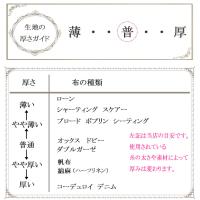 生地の
厚さガイド
薄・・普・・厚
厚さ 布の種類
薄い ローン
シャーティング スケアー
やや薄い ブロード ポプリン シーティング
普通 オックス ドビー
ダブルガーゼ
やや厚い 帆布
綿麻(ハーフリネン)
厚い コーデュロイ デニム
左記は当店の目安です。
使用されている
糸の太さや素材によって
厚みは変わります。